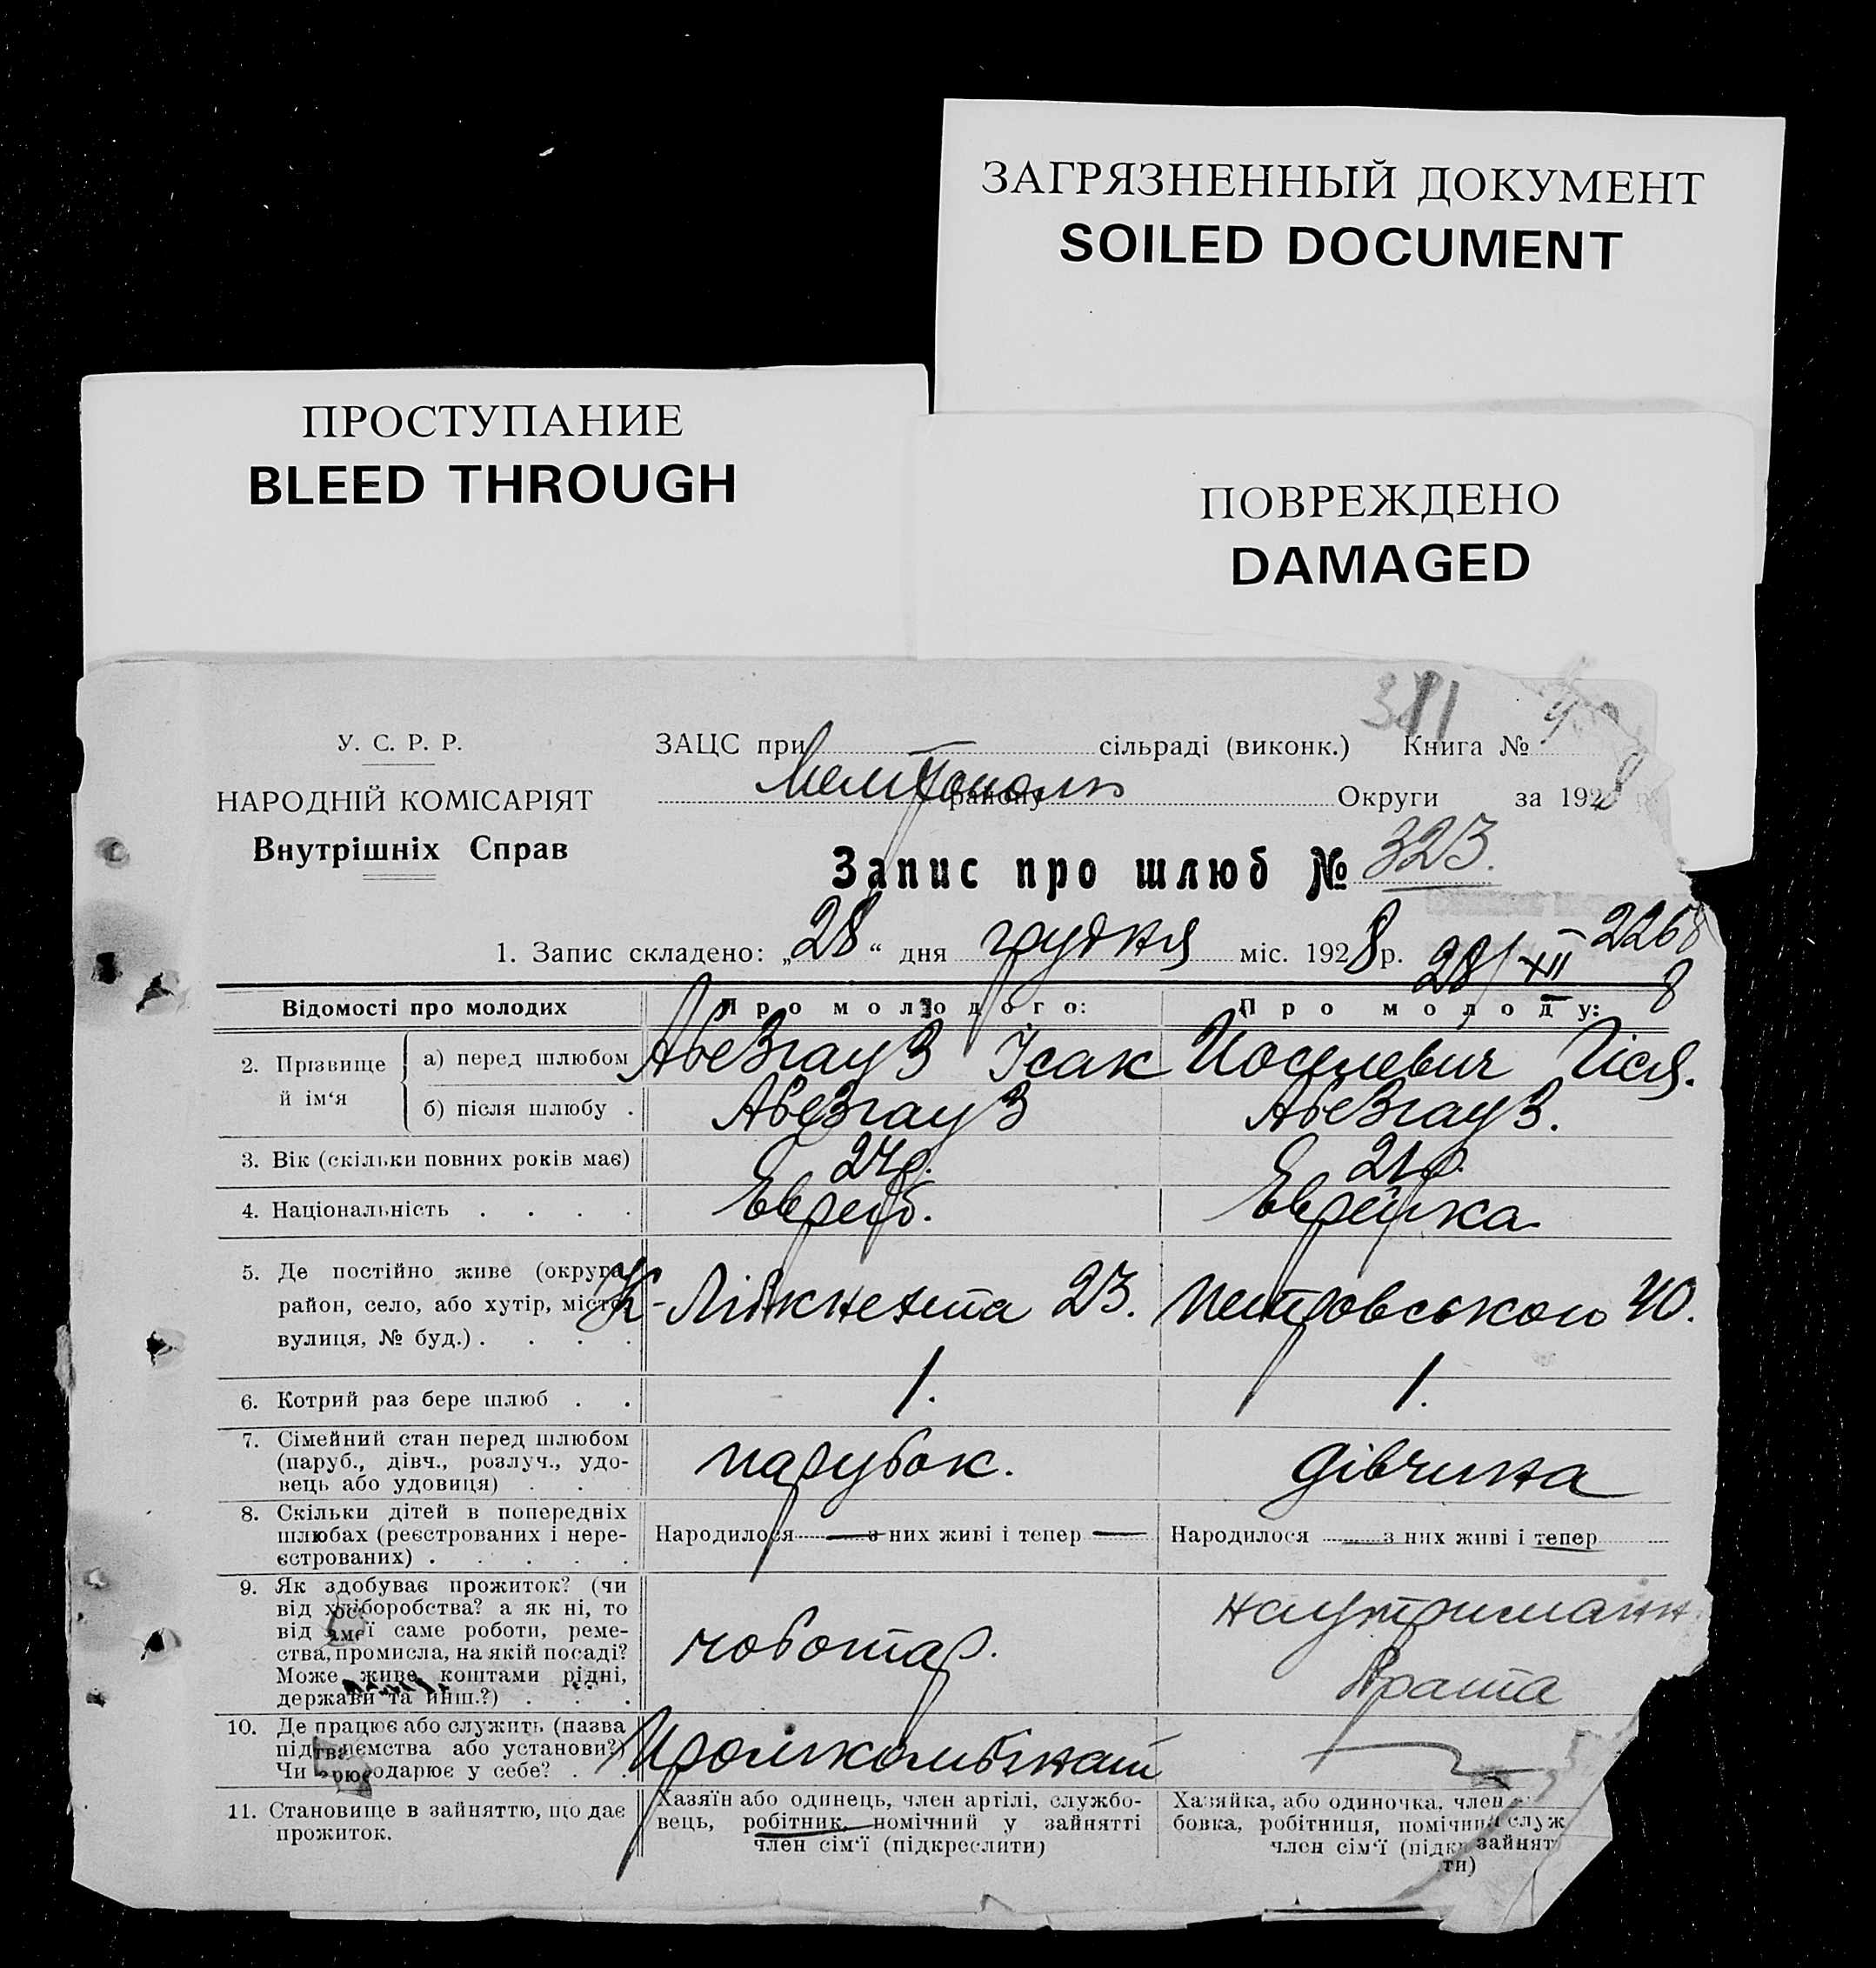 ЗАГРЯЗНЕННЫЙ ДОКУМЕНТ
SOILED DOCUMENT
ПРОСТУПАНИЕ
BLEED THROUGH
ПОВРЕЖДЕНО
DAMAGED
У. С. Р. Р.
НАРОДНІЙ КОМІСАРІЯТ
Внутрішніх Справ
311
ЗАЦС при сільраді (виконк.) Книга №
Мелітополь району Округи за 1928
Запис про шлюб № 323.
1. Запис складено: „28“ дня грудня міс. 1928 р. 28/XII 8 2268
Відомості про молодих
Про молодого:
Про молоду:
2. Прізвище й ім‘я
а) перед шлюбом Авезгауз Ісак Йоселевич Гіся.
б) після шлюбу . Авезгауз Авезгауз.
3. Вік (скільки повних років має) 24р. 21р.
4. Національність . . . . Еврей. Еврейка
5. Де постійно живе (округа,
район, село, або хутір, місто,
вулиця, № буд.) . . . .
К-Лібкнехта 23. Петровського 40.
6. Котрий раз бере шлюб . . 1. 1.
7. Сімейний стан перед шлюбом
(паруб., дівч., розлуч., удо-
вець або удовиця) . . .
парубок. дівчина
8. Скільки дітей в попередніх
шлюбах (реєстрованих і нере-
єстрованих) . . . . .
Народилося — з них живі і тепер —
Народилося — з них живі і тепер
9. Як здобуває прожиток? (чи
від хліборобства? а як ні, то
від якої саме роботи, реме-
ства, промисла, на якій посаді?
Може живе коштами рідні,
держави та инш.?) . . .
чоботар.
на утриманн
брата
10. Де працює або служить (назва
підприємства або установи?)
Чи господарює у себе? . .
Промкомбінат —
11. Становище в зайняттю, що дає
прожиток.
Хазяїн або одинець, член артілі, службо-
вець, робітник, помічний у зайнятті
член сім‘ї (підкреслити)
Хазяйка, або одиночка, член
бовка, робітниця, помічни служ
член сім‘ї (підк зайнят
ти)